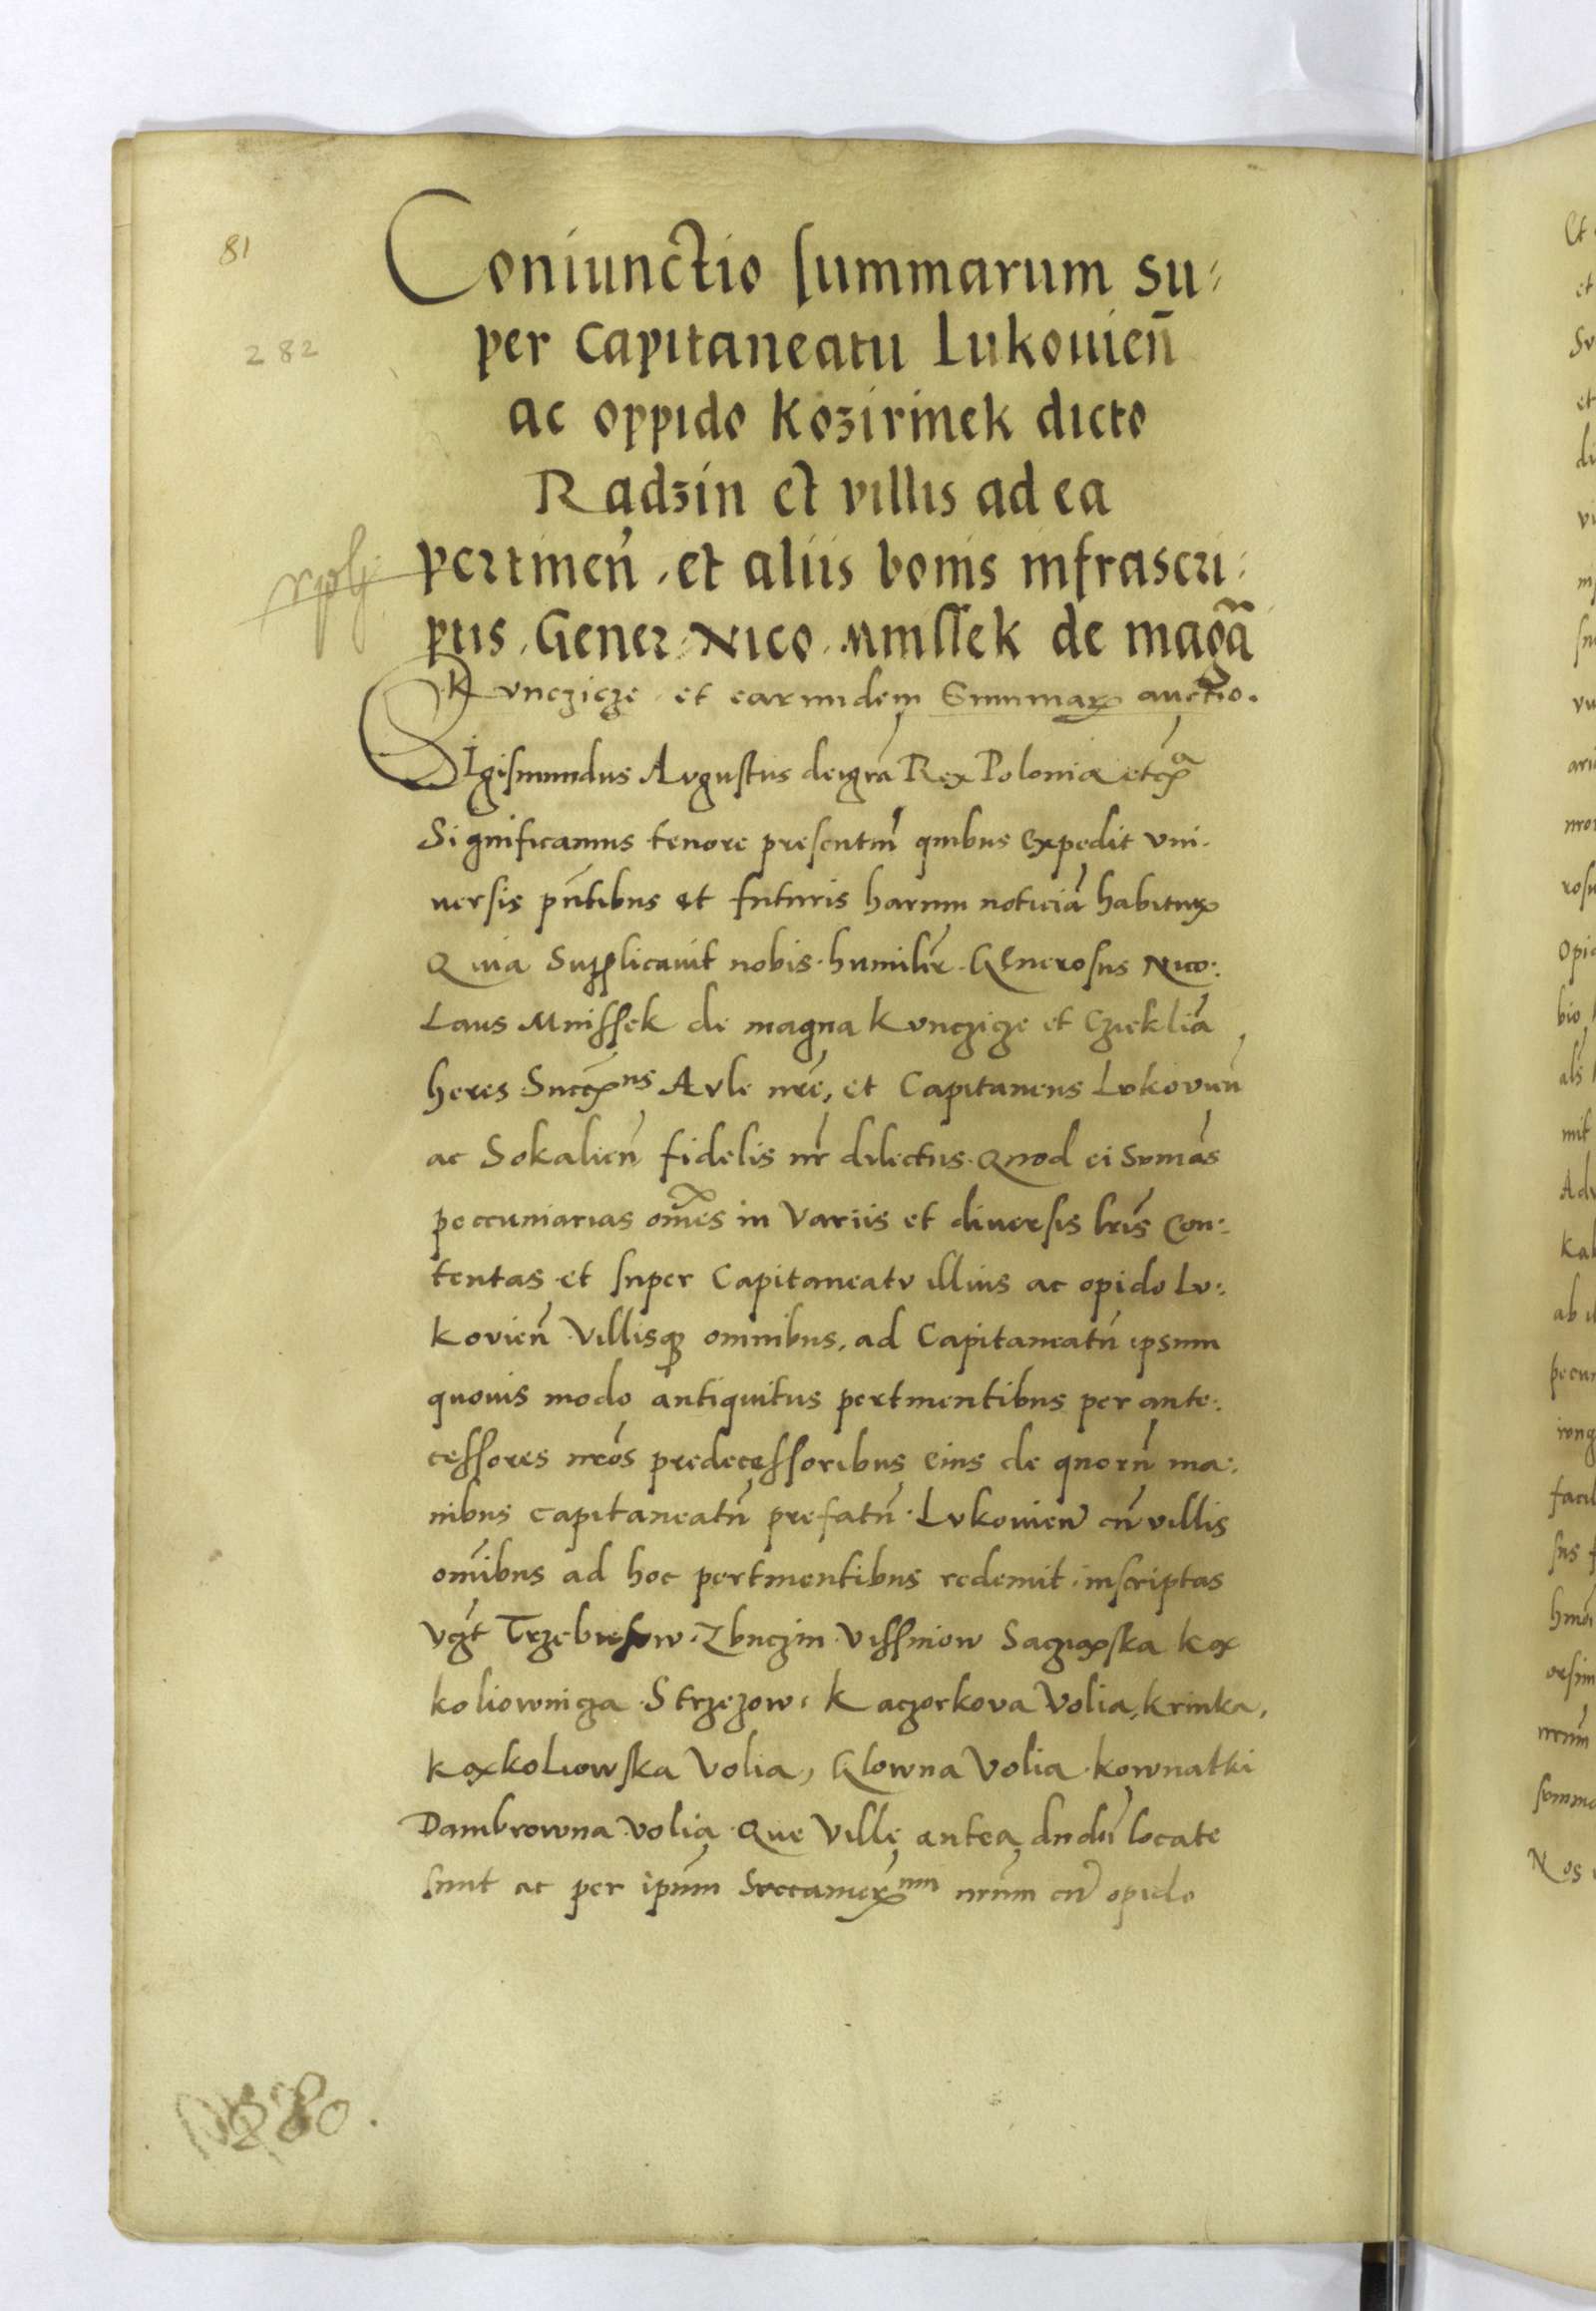 81
282
Coniunctio summarum su⸗
per Capitaneatu Lukouien̄
ac oppido Kozirinek dicto
Radzin et villis ad ea
pertinen̄ et aliis bonis infrascri⸗
ptis Gener Nico Mnissek de magā
Kvnczicze et earundem Summarꝝ auctio.
SIgismundus Avgustus dei grā Rex Poloniæ etcꝝa
Significamus tenore presentiū quibus Expedit vni⸗
uersis pn̄tibus et futuris harum noticiā habiturꝝ
Quia Supplicauit nobis humilr̄ GEnerosus Nico:
Laus Mnissek de magna Kvnczicze et Cziekliā
heres Succꝝus Avle nrē, et Capitaneus Lvkovien̄
ac Sokalien̄ fidelis nr̄ dilectus Quod ei Svmās
peccuniarias om̄es in Variis et diuersis lrīs Con:
tentas et super Capitaneatv illius ac opido Lv:
kovien̄ Villisqꝫ omnibus, ad Capitaneatū ipsum
quouis modo antiquitus pertinentibus per ante:
cessores nrōs predecessoribus eius de quorū ma:
nibus capitaneatū prefatū Lvkouien̄ cū villis
om̄ibus ad hoc pertinentibus redemit inscriptas
vꝫt Trzebiesow Zbuczin Vissniow Saczꝝska Kox
koliownicza Strzezow Kaczorkova Volia, Krinka,
Koxkoliowska Volia, Glowna Volia Kownatki
Dambrowna Volia Que Ville antea dudū locate
sunt ac per ipūm Svccamerꝝum nrūm cū opido